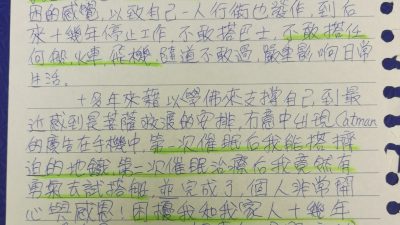 困的感覺,以致自己一人行街也發作,到后
來十幾年停止工作,不敢搭巴士,不敢搭任
何搭火車,飛機,隨道不敢過,嚴重影响日常
生活。
十多年來藉以學佛來支撐自己,到最
近感到是菩薩救渡的安排,冇意中出現Catman
的廣告在手機中,第一次催眠后我能搭擠
迫的地鐵,第二次催眠治療后我竟然有
勇氣去試搭船,並完成了,個人非常開
心與感恩!困擾我和我家人十幾年